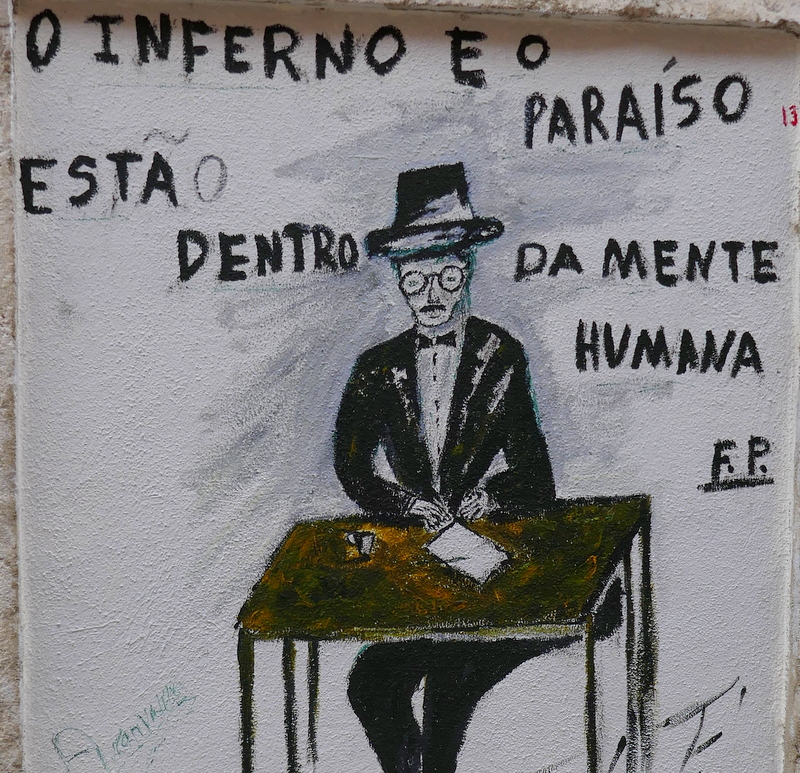 O INFERNO E O
PARAÍSO
13
ESTÃO
DENTRO DA MENTE
HUMANA
F.P.